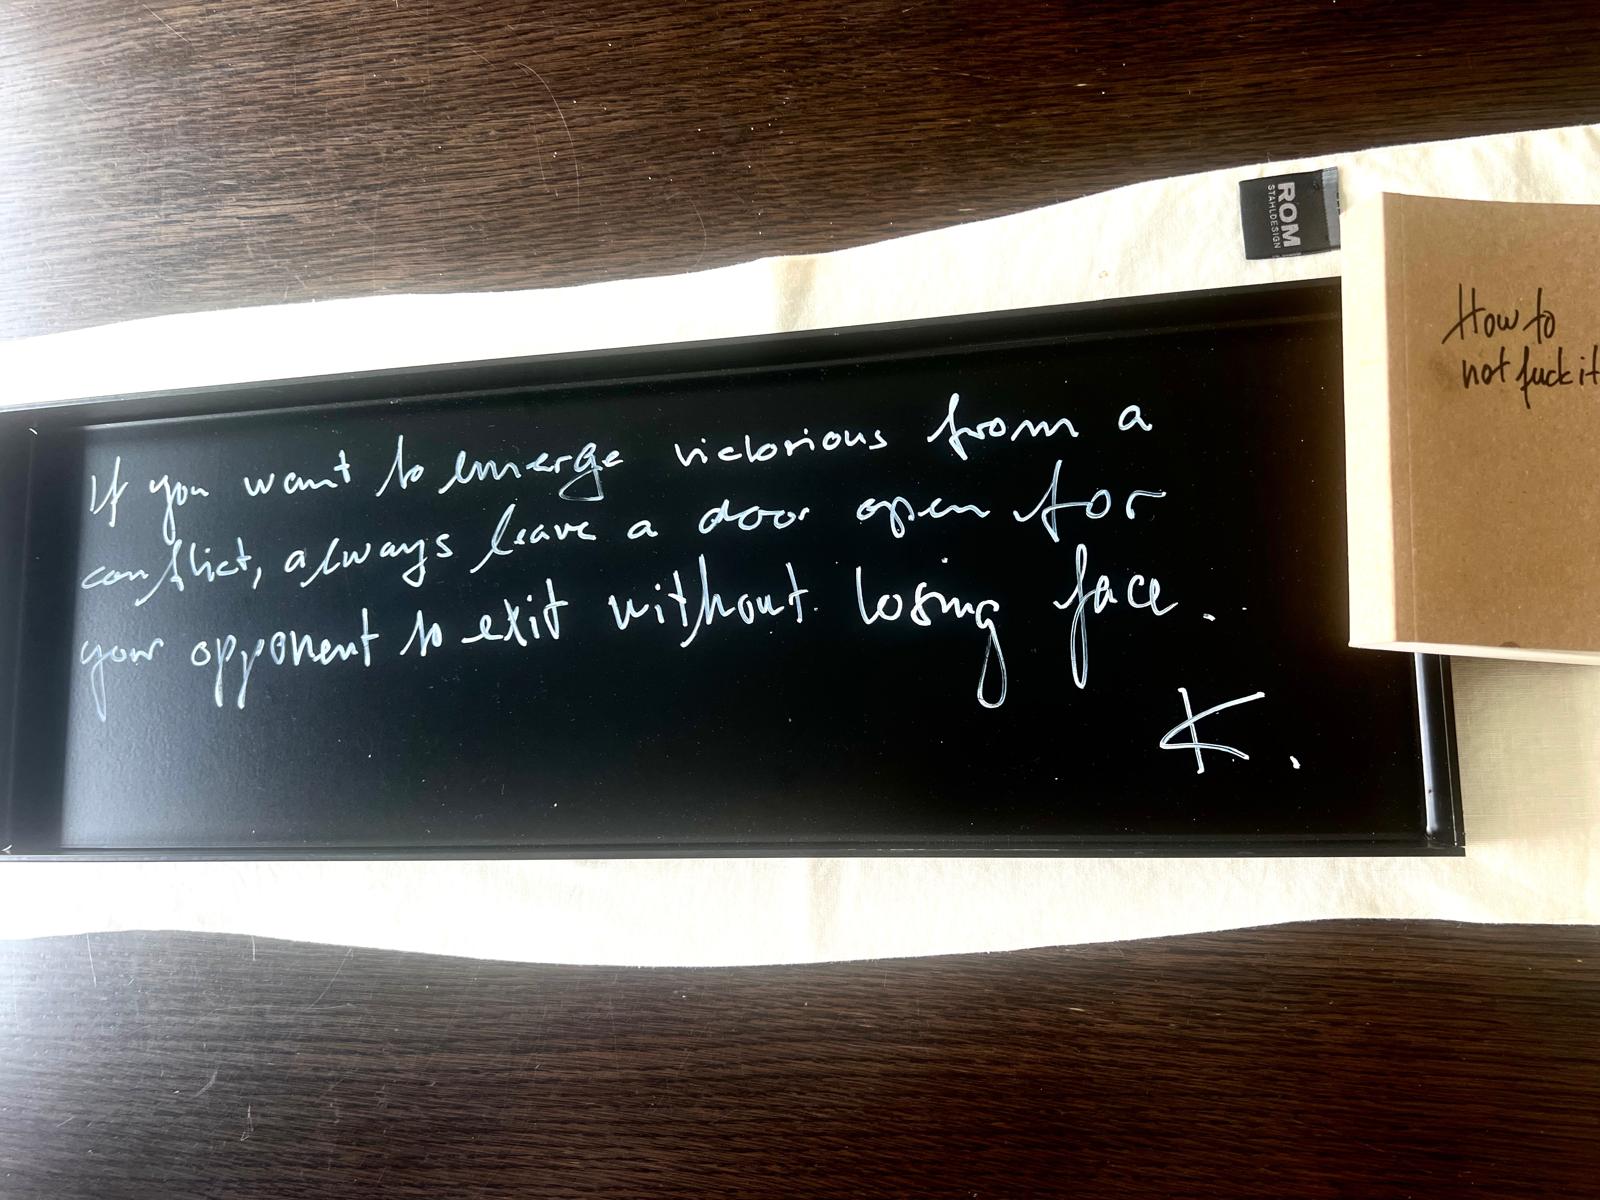 If you want to emerge victorious from a
conflict, always leave a door open for
your opponent to exit without losing face.
K.
ROM
STAHLDESIGN
How to
not fuck it